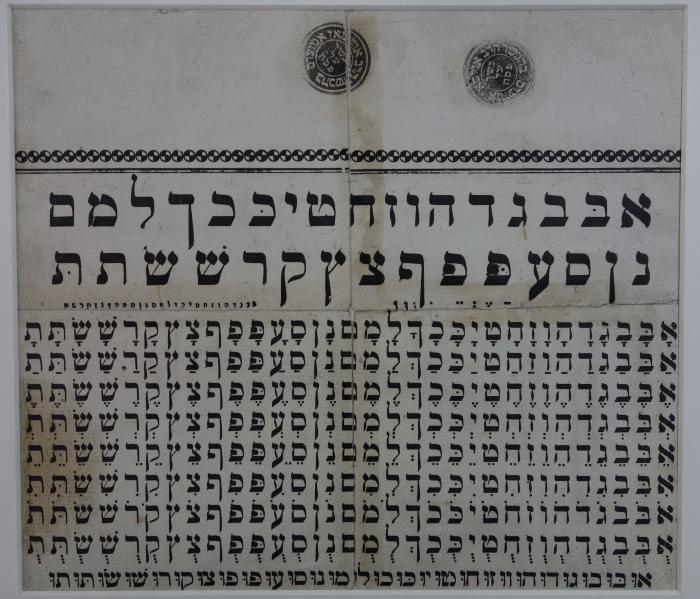 א בּ ב ג ד ה ו ז ח ט י כּ כ ך ל מ ם
נ ן ס ע פּ פ ף צ ץ ק ר שׁ שׂ ת תּ
א ב ב ג ד ה ו ז ח ט י כ כ ך ל מ ם נ ן ס ע פ פ ף צ ץ ק ר ש ש ת ת
א ב ב ג ד ה ו ז ח ט י כ כ ך ל מ ם נ ן ס ע פ פ ף צ ץ ק ר ש ש ת ת
א ב ב ג ד ה ו ז ח ט י כ כ ך ל מ ם נ ן ס ע פ פ ף צ ץ ק ר ש ש ת ת
א ב ב ג ד ה ו ז ח ט י כ כ ך ל מ ם נ ן ס ע פ פ ף צ ץ ק ר ש ש ת ת
א ב ב ג ד ה ו ז ח ט י כ כ ך ל מ ם נ ן ס ע פ פ ף צ ץ ק ר ש ש ת ת
א ב ב ג ד ה ו ז ח ט י כ כ ך ל מ ם נ ן ס ע פ פ ף צ ץ ק ר ש ש ת ת
א ב ב ג ד ה ו ז ח ט י כ כ ך ל מ ם נ ן ס ע פ פ ף צ ץ ק ר ש ש ת ת
א ב ב ג ד ה ו ז ח ט י כ כ ך ל מ ם נ ן ס ע פ פ ף צ ץ ק ר ש ש ת ת
או בו בו גו דו הו וו זו חו טו יו כו כו לו מו נו סו עו פו פו צו קו רו שו שו תו תו